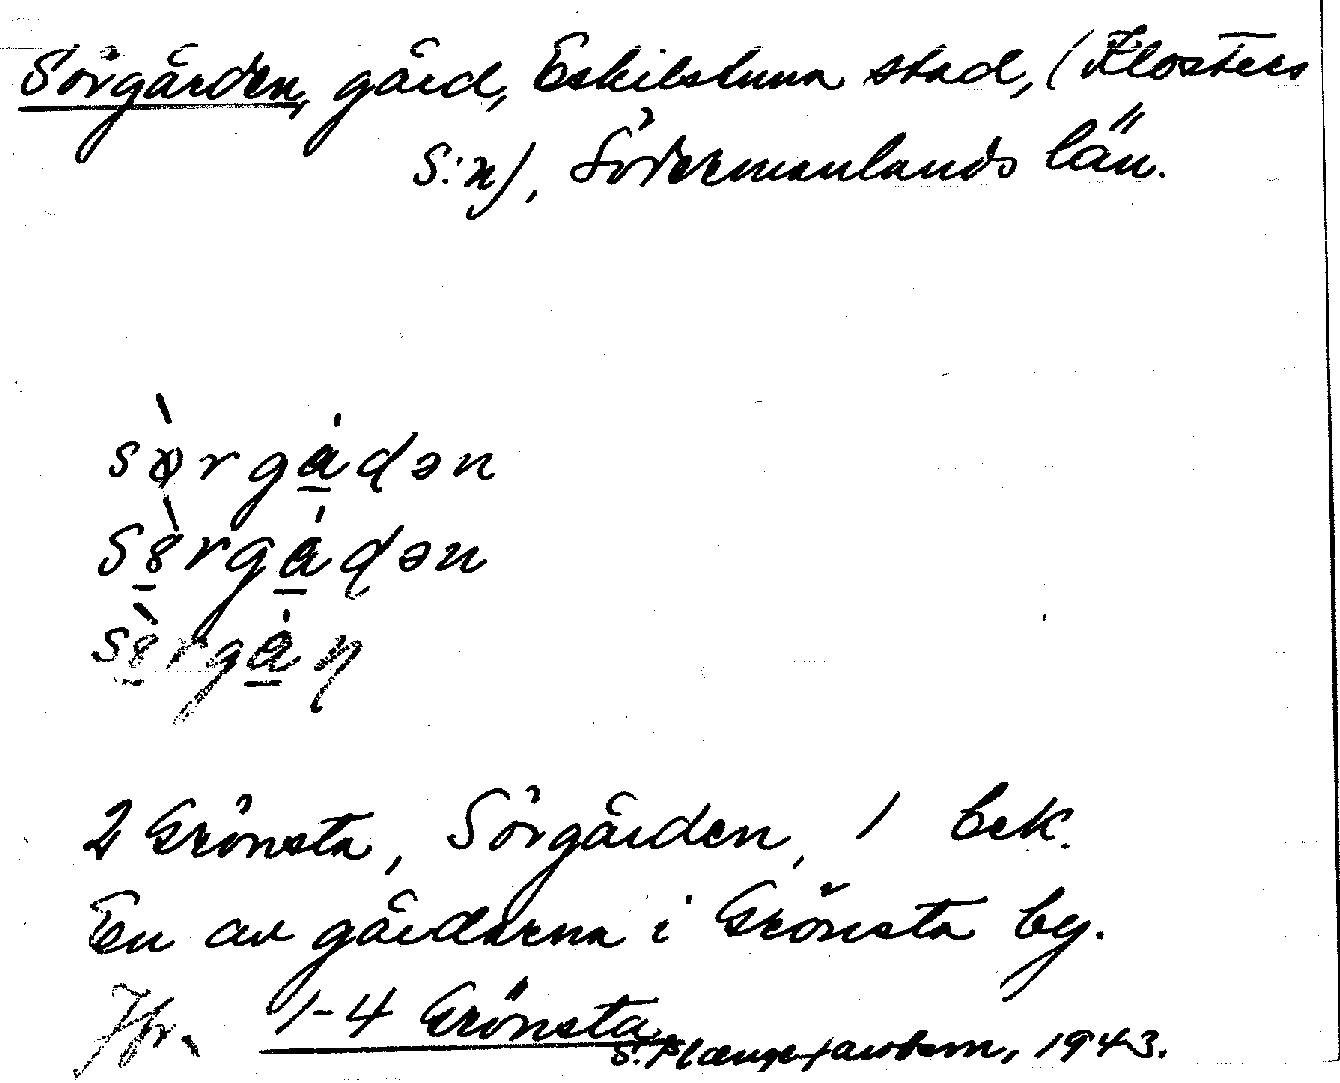 Sörgården, gård, Eskilstuna stad, (Klosters
S:n), Södermanlands län.
sòrgȧdən
sèrgȧdən
sèrgȧn
2 Grönsta, Sörgården, 1 bek.
En av gårdarna i Grönsta by.
Jfr. 1-4 Grönsta
1943.